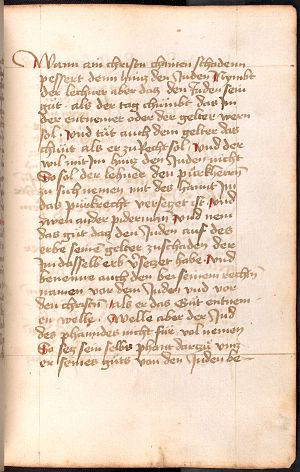 Wann ain christn chainen schadenn
pessert denn hintz den Juden Nymbt
der lechner aber datz den Juden sein
gut · als der tag chumbt das Im
der entnemer oder der gelter wern
sol · Und tut auch dem gelter das
chunt als er zu Recht sol · Und der
wil mit Im hintz den Juden nicht
So sol der lehner den purkherren
zu sich nemen mit des hannt Im
das purkrecht versetzet ist · Und
zwen ander piderman Und nem
das gut datz den Juden auf des
erbe seine gelter zuschaden der
Im dasselb erb versetzt habe · Und
benenne auch den bei seinem rechten
namen vor dem Juden und vor
den christen Als er das Gut entnem-
en welle · Welle aber der Jud
des phanndes nicht fur vol nemen
So setz sein selbs phant dartzu untz
er seines guts von den Juden be-